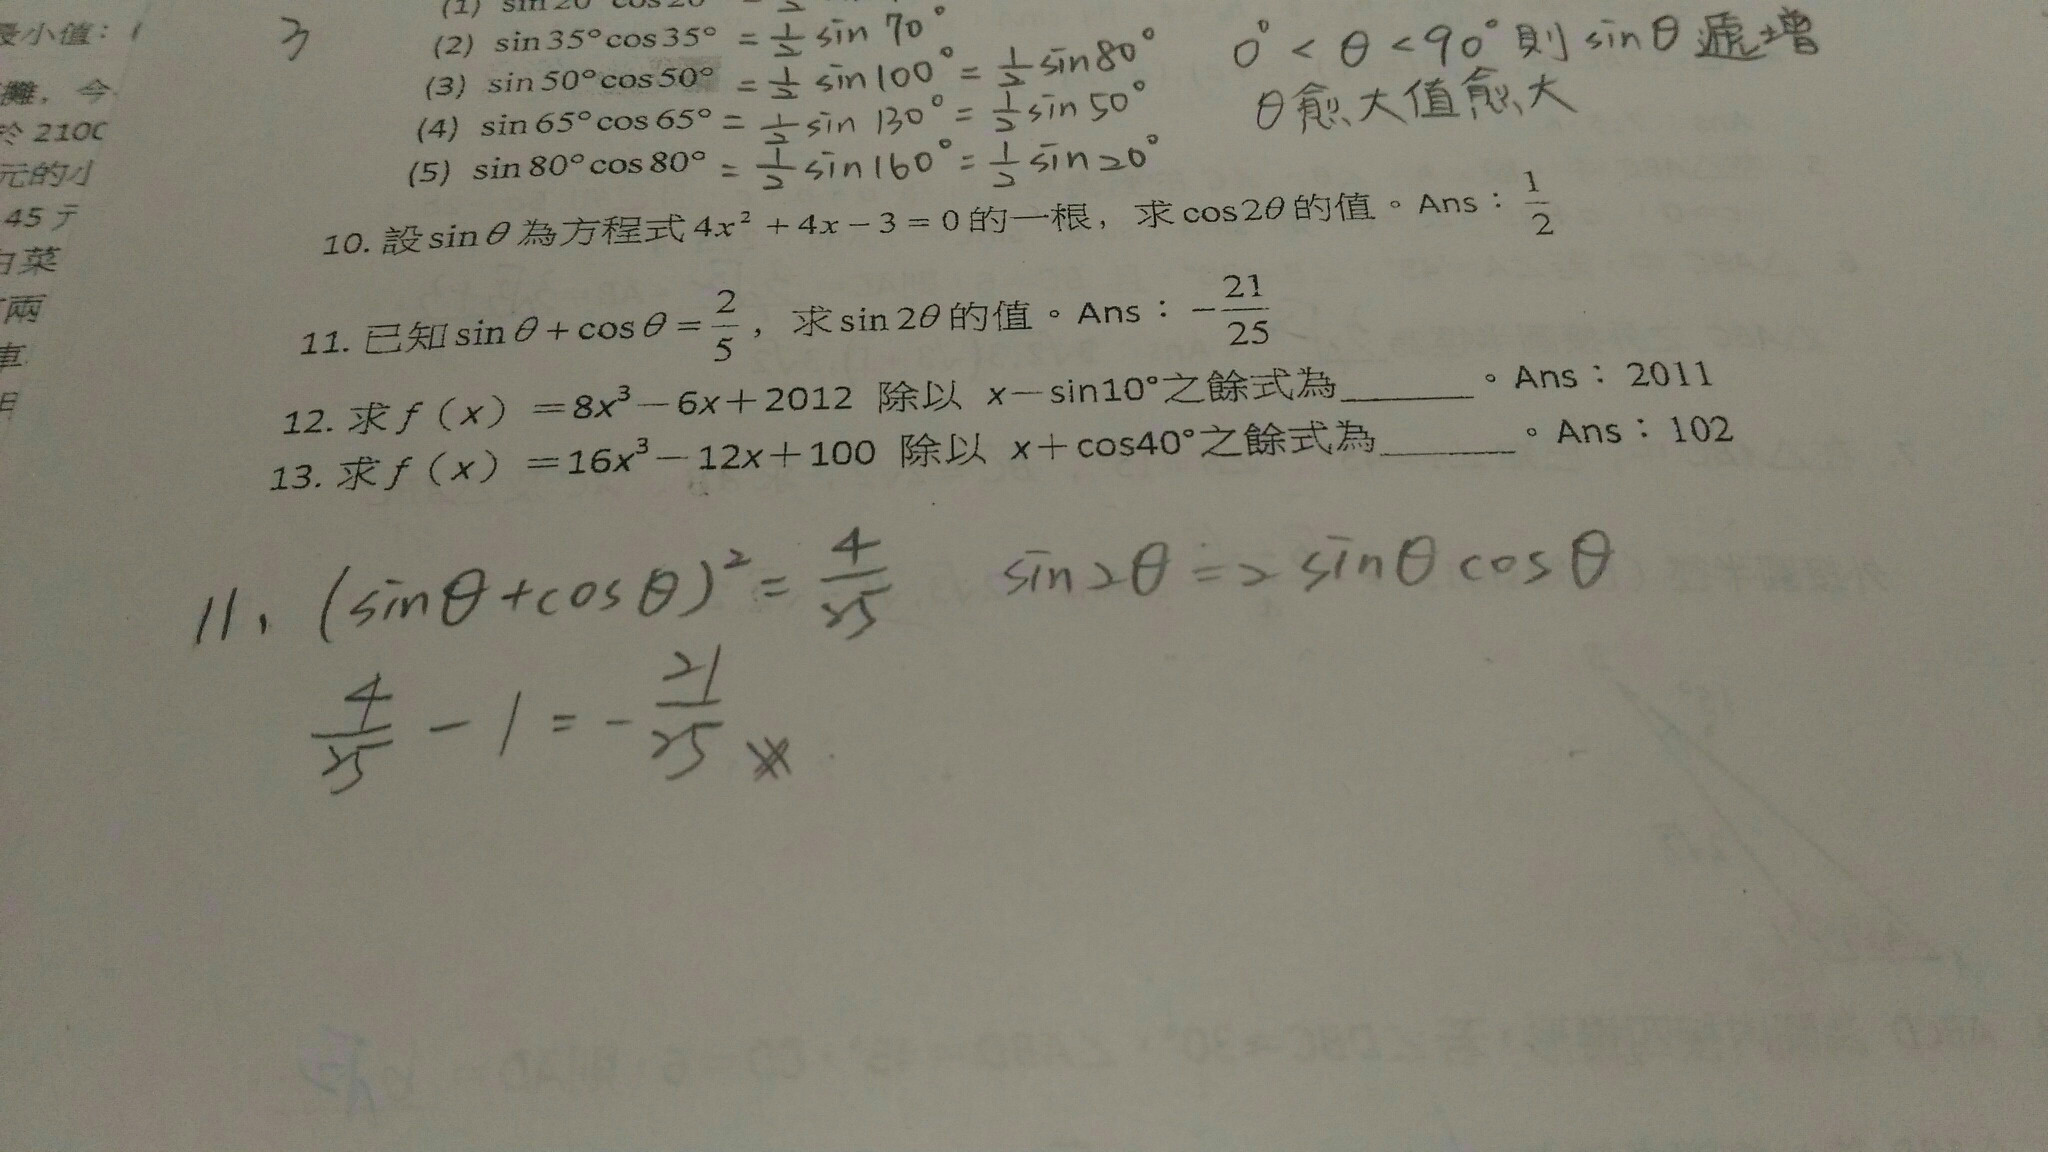 最小值：1
3
攤，今
於 2100
元的小
45 元
白菜
兩
車
(1) sin20° cos20° =
(2) sin35°cos35° = 1/2 sin 70°
(3) sin50°cos50° = 1/2 sin100° = 1/2 sin80°
(4) sin65°cos65° = 1/2 sin 130° = 1/2 sin 50°
(5) sin80°cos80° = 1/2 sin160° = 1/2 sin20°
0° < θ < 90° 則 sinθ 遞增
θ愈大值愈大
10. 設 sinθ 為方程式 4x² + 4x − 3 = 0 的一根，求 cos2θ 的值。Ans：1/2
11. 已知 sinθ + cosθ = 2/5，求 sin2θ 的值。Ans：−21/25
12. 求 f（x）＝8x³－6x＋2012 除以 x－sin10°之餘式為______。Ans：2011
13. 求 f（x）＝16x³－12x＋100 除以 x＋cos40°之餘式為______。Ans：102
11、(sinθ+cosθ)² = 4/25 sin2θ = 2 sinθ cosθ
4/25 − 1 = −21/25